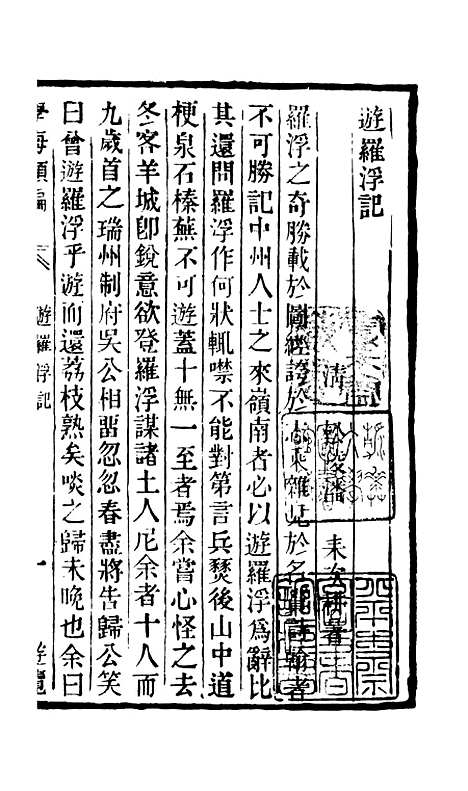 遊羅浮記
清 潘耒次耕著
羅浮之奇勝載於圖經誇於 來雜見於名 詩翰者
不可勝記中州人士之來嶺南者必以遊羅浮爲辭比
其還問羅浮作何狀輒噤不能對第言兵燹後山中道
梗泉石榛蕪不可遊蓋十無一至者焉余嘗心怪之去
冬客羊城卽銳意欲登羅浮謀諸土人尼余者十人而
九歲首之瑞州制府吳公相畱忽忽春盡將告歸公笑
曰曾遊羅浮乎遊而還荔枝熟矣啖之歸未晚也余曰
學海類編 遊羅浮記 一 遊覽